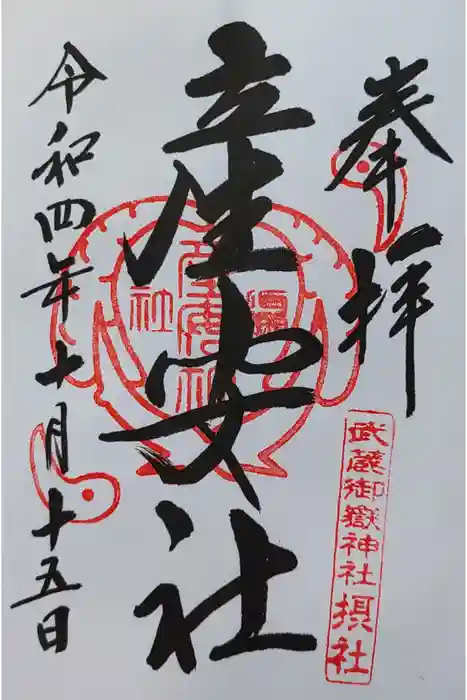 奉拝
武蔵御嶽神社摂社
産安社
令和四年十月十五日